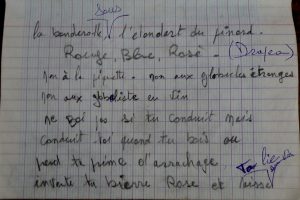 sous
la banderolle l'etendart du pinard.
Rouge, Blanc Rosé - (Drapeau)
non à la piquette. non aux globules étranges
non aux globaliste en vin
ne boi pas si tu conduit mais
conduit toi quand tu bois ou
perd ta prime d'arrachage
invente ta bierre Rose et laisse
Ta